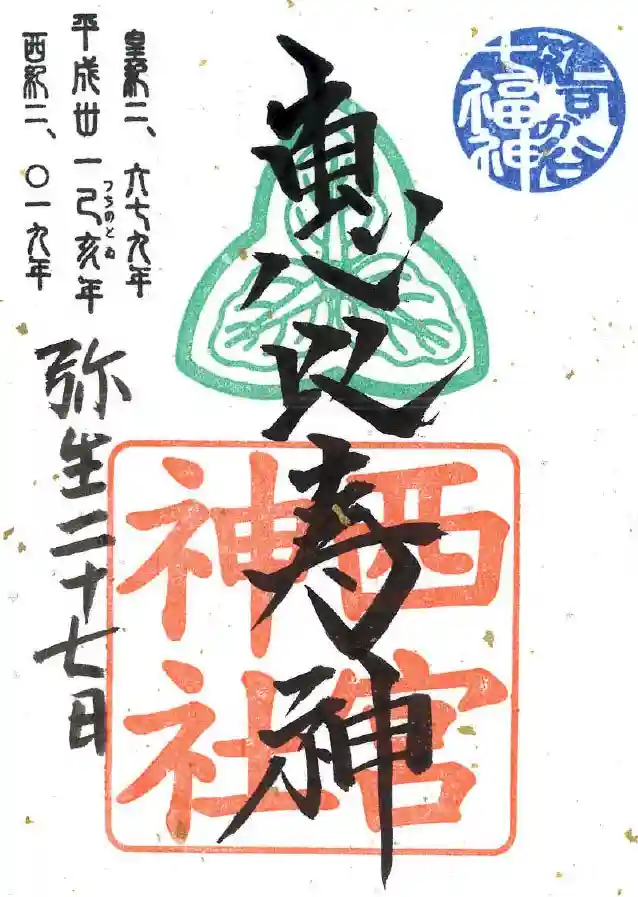 雑司が谷
七福神
惠比寿神
西宮
神社
皇紀二、六七九年
平成丗一己亥年
つちのとゐ
西紀二、〇一九年
弥生二十七日